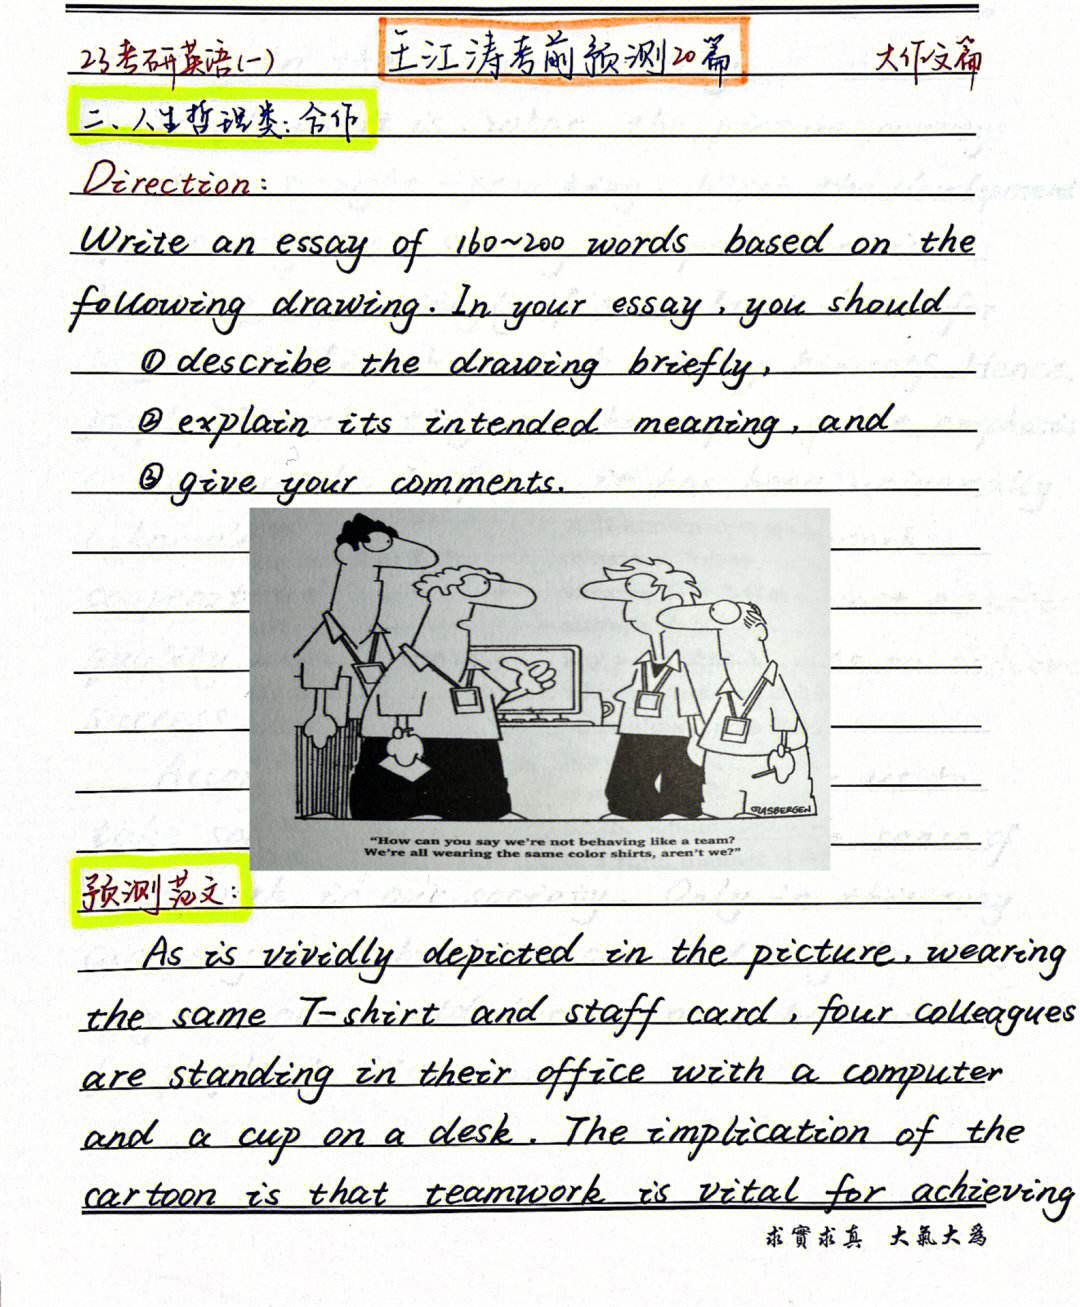 23考研英语(一) 王江涛考前预测20篇 大作文篇
二、人生哲理类:合作
Direction:
Write an essay of 160~200 words based on the
following drawing. In your essay, you should
① describe the drawing briefly,
② explain its intended meaning, and
③ give your comments.
GLASBERGEN
"How can you say we're not behaving like a team?
We're all wearing the same color shirts, aren't we?"
预测范文:
As is vividly depicted in the picture, wearing
the same T-shirt and staff card, four colleagues
are standing in their office with a computer
and a cup on a desk. The implication of the
cartoon is that teamwork is vital for achieving
求實求真 大氣大為